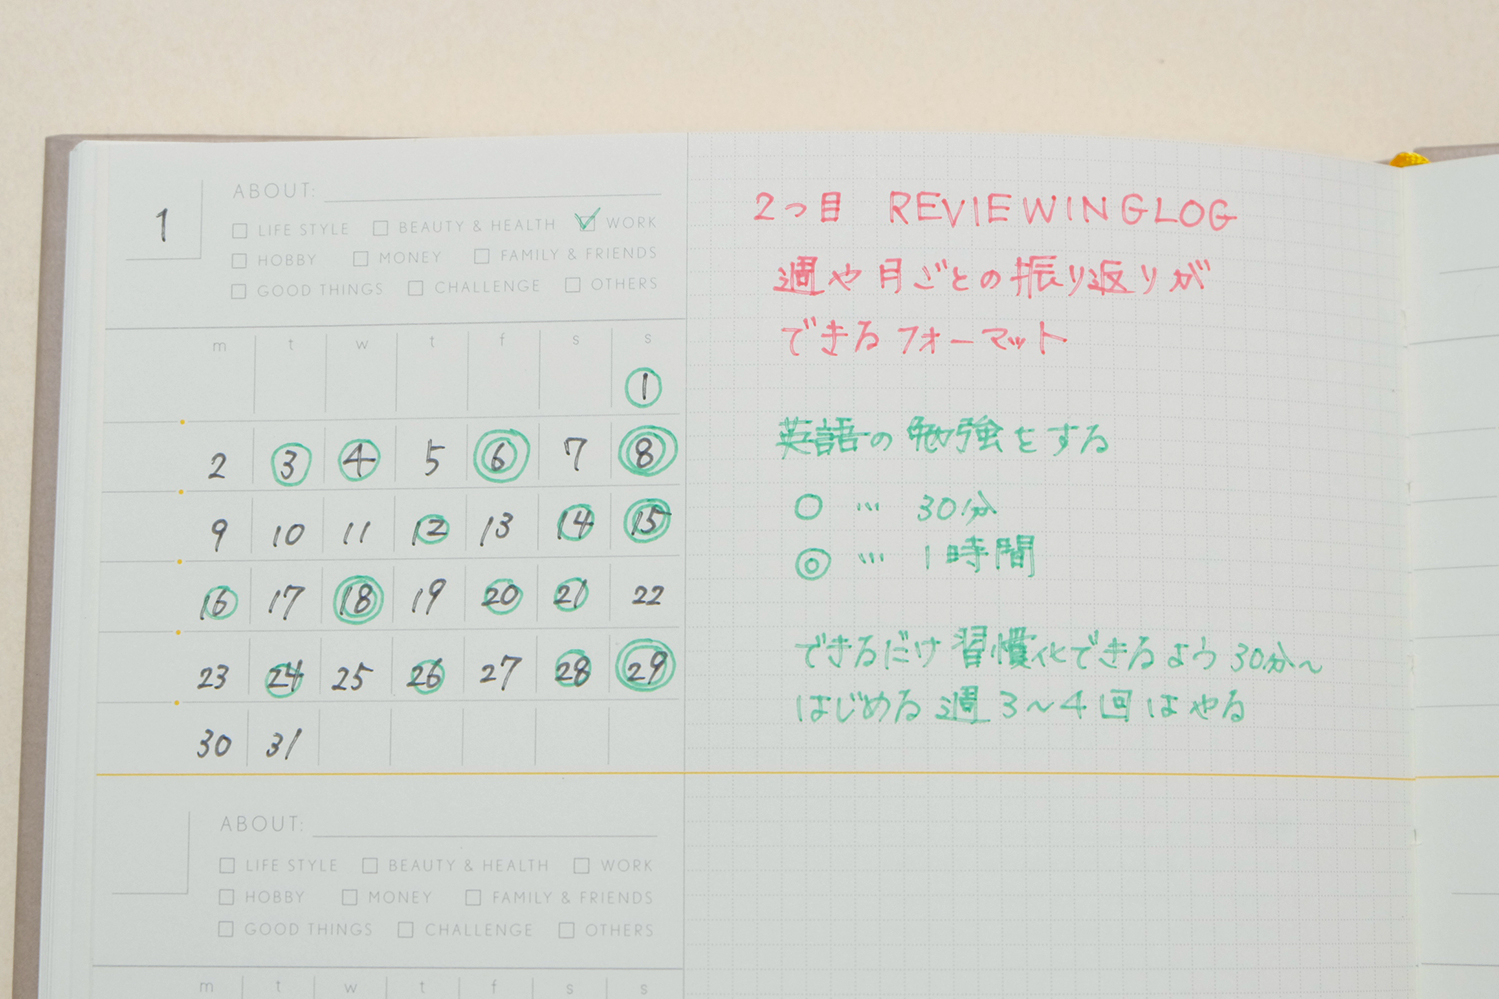 1
ABOUT:
LIFE STYLE BEAUTY & HEALTH WORK
HOBBY MONEY FAMILY & FRIENDS
GOOD THINGS CHALLENGE OTHERS
m t w t f s s
1
2 3 4 5 6 7 8
9 10 11 12 13 14 15
16 17 18 19 20 21 22
23 24 25 26 27 28 29
30 31
2つ目 REVIEWINGLOG
週や月ごとの振り返りが
できるフォーマット
英語の勉強をする
○ … 30分
◎ … 1時間
できるだけ習慣化できるよう30分〜
はじめる 週3〜4回はやる
ABOUT:
LIFE STYLE BEAUTY & HEALTH WORK
HOBBY MONEY FAMILY & FRIENDS
GOOD THINGS CHALLENGE OTHERS
m t w t f s s